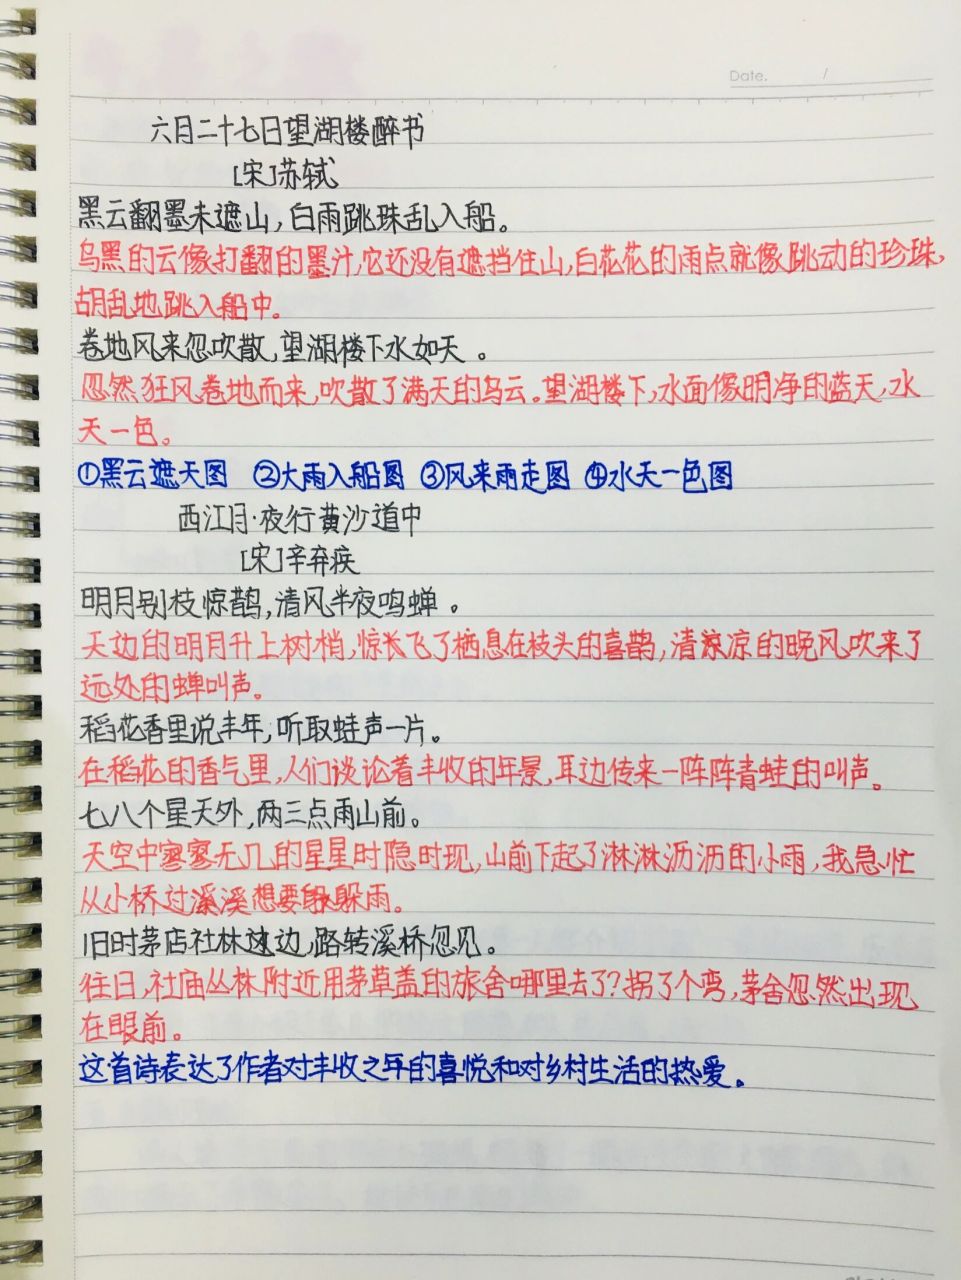 Date. /
六月二十七日望湖楼醉书
[宋]苏轼
黑云翻墨未遮山,白雨跳珠乱入船。
乌黑的云像打翻的墨汁,它还没有遮挡住山,白花花的雨点就像跳动的珍珠,
胡乱地跳入船中。
卷地风来忽吹散,望湖楼下水如天。
忽然狂风卷地而来,吹散了满天的乌云。望湖楼下,水面像明净的蓝天,水
天一色。
①黑云遮天图 ②大雨入船图 ③风来雨走图 ④水天一色图
西江月·夜行黄沙道中
[宋]辛弃疾
明月别枝惊鹊,清风半夜鸣蝉。
天边的明月升上树梢,惊长飞了栖息在枝头的喜鹊,清凉凉的晚风吹来了
远处的蝉叫声。
稻花香里说丰年,听取蛙声一片。
在稻花的香气里,人们谈论着丰收的年景,耳边传来一阵阵青蛙的叫声。
七八个星天外,两三点雨山前。
天空中寥寥无几的星星时隐时现,山前下起了淋淋沥沥的小雨,我急忙
从小桥过溪溪想要躲躲雨。
旧时茅店社林边,路转溪桥忽见。
往日,社庙丛林附近用茅草盖的旅舍哪里去了?拐了个弯,茅舍忽然出现
在眼前。
这首诗表达了作者对丰收之年的喜悦和对乡村生活的热爱。